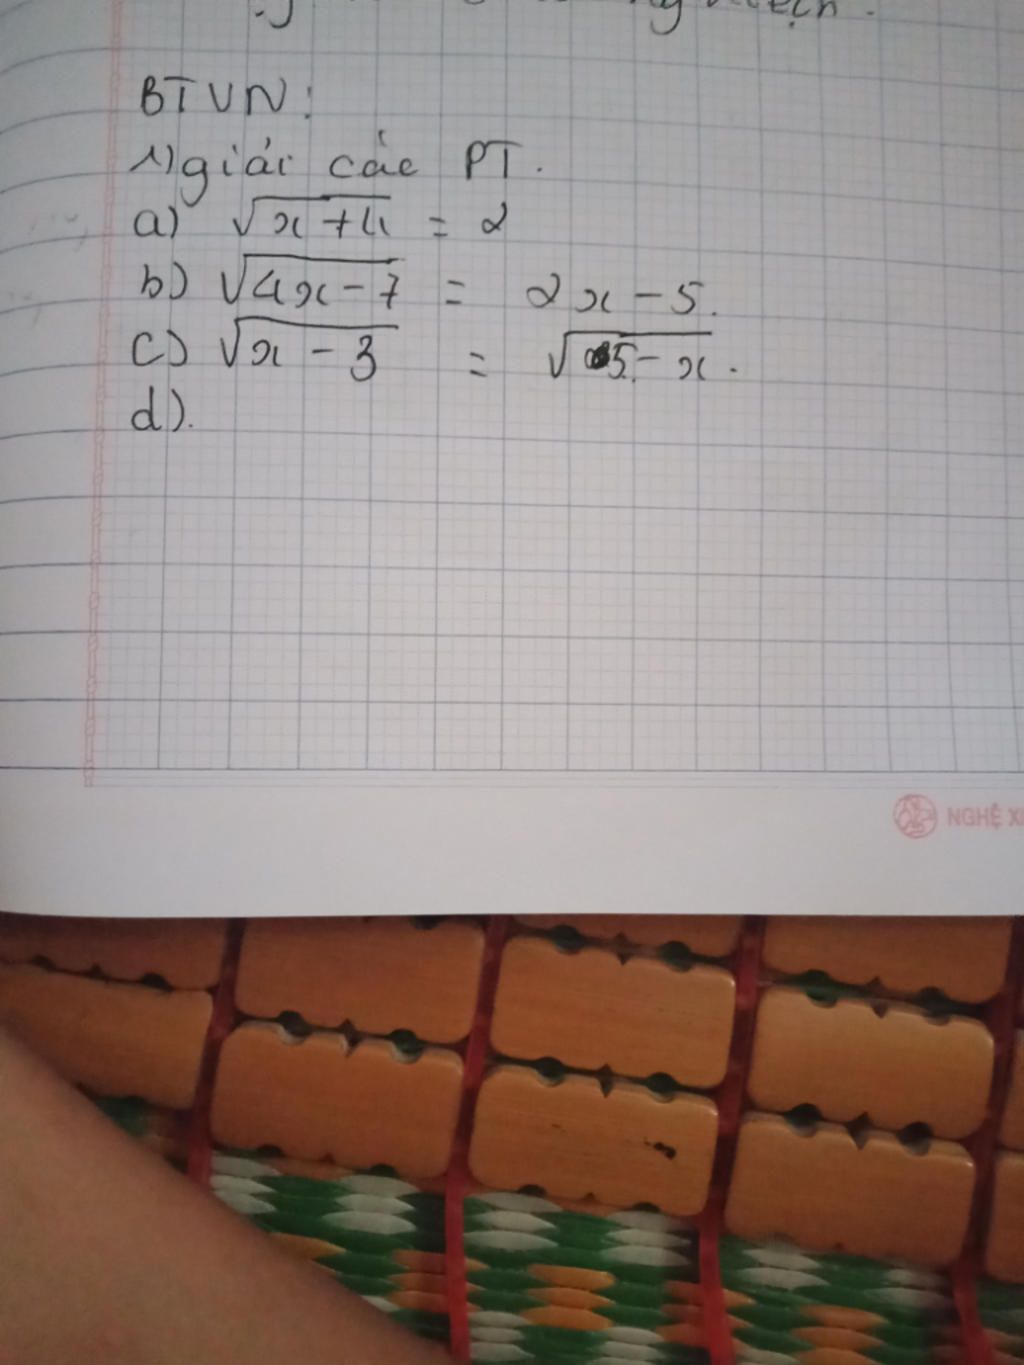 BTVN:
1) giải các PT.
a) √x+4 = 2
b) √4x-7 = 2x-5.
c) √x-3 = √5-x.
d).
NGHỆ